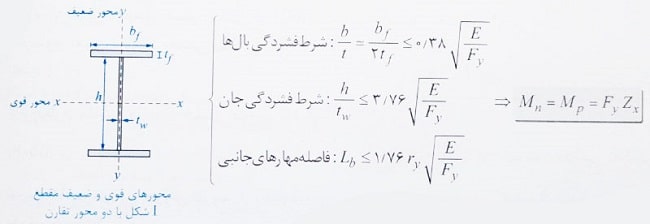 محور ضعیف y
b_f
t_f
h
محور قوی x x
t_w
y
محورهای قوی و ضعیف مقطع
I شکل با دو محور تقارن
شرط فشردگی بال‌ها : b/t = b_f/۲t_f ≤ ۰/۳۸ √(E/F_y)
شرط فشردگی جان : h/t_w ≤ ۳/۷۶ √(E/F_y) ⇒ M_n = M_p = F_y Z_x
فاصله مهارهای جانبی : L_b ≤ ۱/۷۶ r_y √(E/F_y)